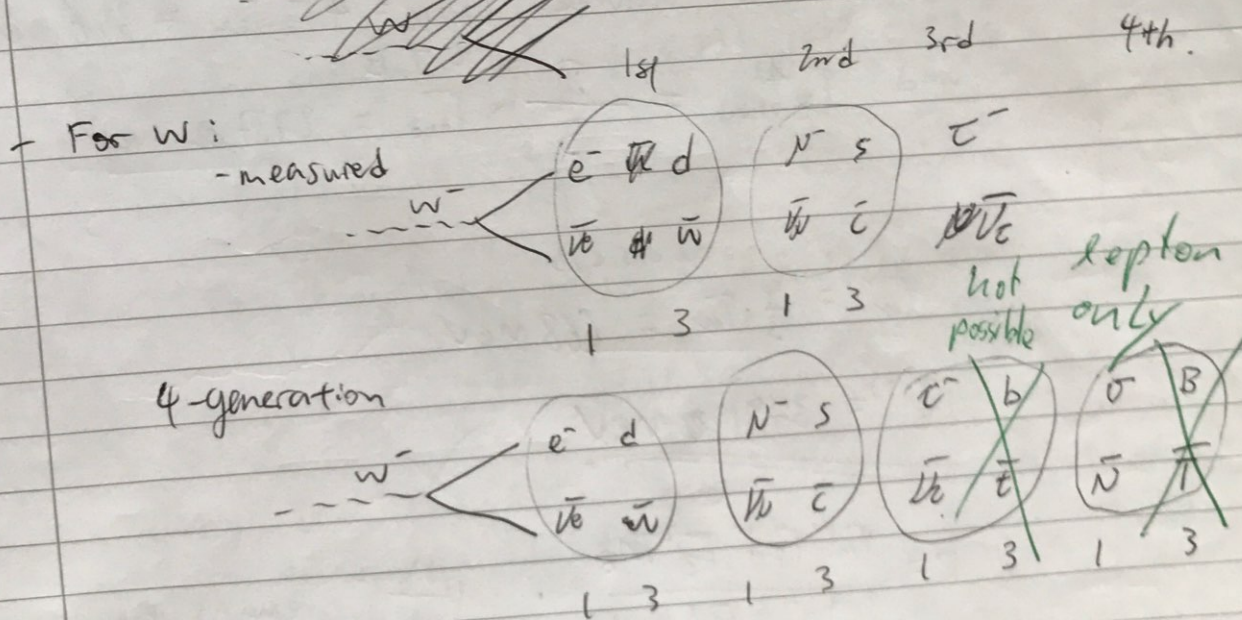 1st 2nd 3rd 4th.
- For W:
- measured
W⁻
e⁻ d μ⁻ s τ⁻
ν̄e ū ν̄μ c̄ ν̄τ
1 3 1 3
not possible
lepton only
4-generation
W⁻
e⁻ d μ⁻ s τ⁻ b σ B
ν̄e ū ν̄μ c̄ ν̄τ t̄ N̄ T̄
1 3 1 3 1 3 1 3